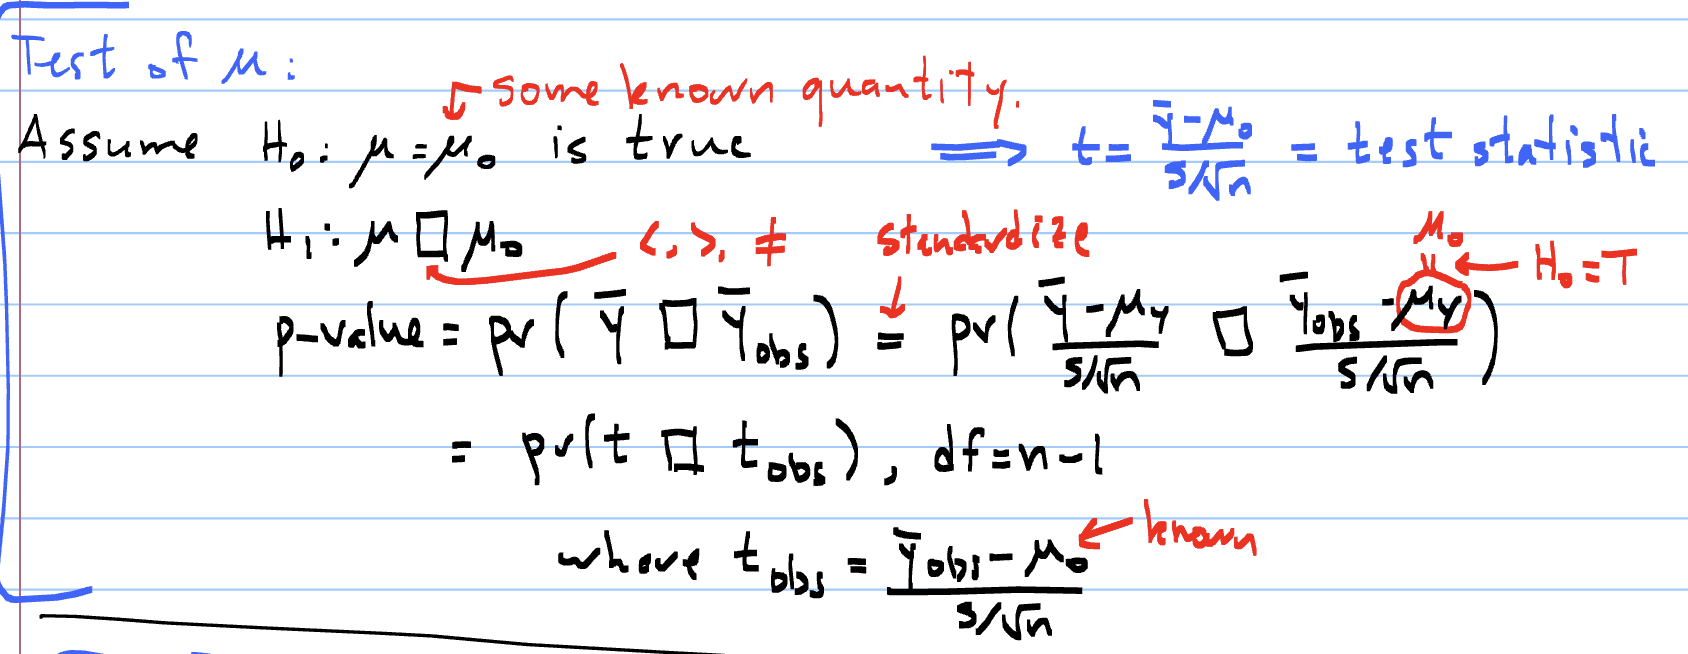 Test of μ:
some known quantity.
Assume H₀: μ = μ₀ is true ⟹ t = (ȳ - μ₀)/(s/√n) = test statistic
H₁: μ □ μ₀ <, >, ≠ standardize μ₀
H₀ = T
p-value = pr( ȳ □ ȳ_obs ) = pr( (ȳ - μ_y)/(s/√n) □ (ȳ_obs - μ_y)/(s/√n) )
= pr(t □ t_obs), df = n-1
known
where t_obs = (ȳ_obs - μ₀)/(s/√n)